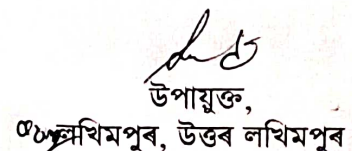 উপায়ুক্ত,
লখিমপুৰ, উত্তৰ লখিমপুৰ